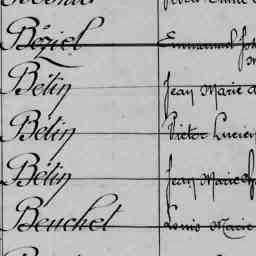 Béziel Emmanuel
Bétin Jean Marie
Bétin Victor Lucien
Bétin Jean Marie
Beuchet Louis Marie